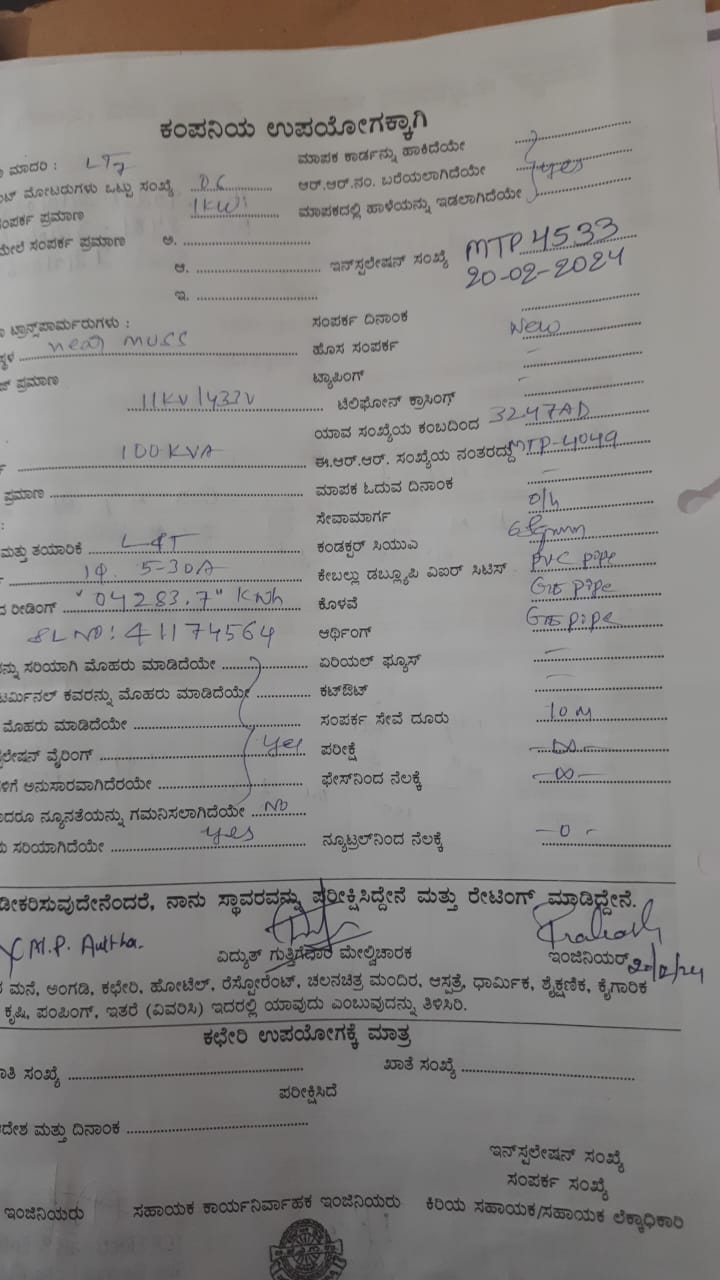 ಕಂಪನಿಯ ಉಪಯೋಗಕ್ಕಾಗಿ
ಮಾದರಿ : LT7 ಮಾಪಕ ಕಾರ್ಡನ್ನು ಹಾಕಿದೆಯೇ
ಮೋಟರುಗಳು ಒಟ್ಟು ಸಂಖ್ಯೆ ಆರ್.ಆರ್.ನಂ. ಬರೆಯಲಾಗಿದೆಯೇ yes
ಸಂಪರ್ಕ ಪ್ರಮಾಣ 1KW ಮಾಪಕದಲ್ಲಿ ಹಾಳೆಯನ್ನು ಇಡಲಾಗಿದೆಯೇ
ಮೇಲೆ ಸಂಪರ್ಕ ಪ್ರಮಾಣ ಅ.
ಆ. ಇನ್‌ಸ್ಟಲೇಷನ್ ಸಂಖ್ಯೆ MTP 4533
20-02-2024
ಇ.
ಟ್ರಾನ್ಸ್‌ಫಾರ್ಮರುಗಳು : ಸಂಪರ್ಕ ದಿನಾಂಕ
near MUSS ಹೊಸ ಸಂಪರ್ಕ New
ಪ್ರಮಾಣ ಟ್ಯಾಪಿಂಗ್ –
11KV/433V ಟೆಲಿಫೋನ್ ಕ್ರಾಸಿಂಗ್ –
ಯಾವ ಸಂಖ್ಯೆಯ ಕಂಬದಿಂದ 3247AD
100KVA ಈ.ಆರ್.ಆರ್. ಸಂಖ್ಯೆಯ ನಂತರದ್ದು MTP-4049
ಪ್ರಮಾಣ ಮಾಪಕ ಓದುವ ದಿನಾಂಕ –
ಸೇವಾಮಾರ್ಗ o/h
ಮತ್ತು ತಯಾರಿಕೆ L&T ಕಂಡಕ್ಟರ್ ಸಿಯುಎ
1Φ. 5-30A ಕೇಬಲ್ಲು ಡಬ್ಲ್ಯೂಪಿ ವಿಐರ್ ಸಿಟಿಸ್ PVC pipe
ರೀಡಿಂಗ್ "04283.7" KWh ಕೊಳವೆ pipe
SL NO: 41174564 ಆರ್ಥಿಂಗ್ pipe
ಸರಿಯಾಗಿ ಮೊಹರು ಮಾಡಿದೆಯೇ ಏರಿಯಲ್ ಫ್ಯೂಸ್ –
ಟರ್ಮಿನಲ್ ಕವರನ್ನು ಮೊಹರು ಮಾಡಿದೆಯೇ ಕಟ್‌ಔಟ್ –
ಮೊಹರು ಮಾಡಿದೆಯೇ ಸಂಪರ್ಕ ಸೇವೆ ದೂರು 10 M
ವೈರಿಂಗ್ yes ಪರೀಕ್ಷೆ –∞–
ಅನುಸಾರವಾಗಿದೆರಯೇ ಫೇಸ್‌ನಿಂದ ನೆಲಕ್ಕೆ –∞–
ನ್ಯೂನತೆಯನ್ನು ಗಮನಿಸಲಾಗಿದೆಯೇ No
ಸರಿಯಾಗಿದೆಯೇ yes ನ್ಯೂಟ್ರಲ್‌ನಿಂದ ನೆಲಕ್ಕೆ –0–
ನಾನು ಸ್ಥಾವರವನ್ನು ಪರೀಕ್ಷಿಸಿದ್ದೇನೆ ಮತ್ತು ರೇಟಿಂಗ್ ಮಾಡಿದ್ದೇನೆ.
M.P. Prakash
ವಿದ್ಯುತ್ ಗುತ್ತಿಗೆದಾರ ಮೇಲ್ವಿಚಾರಕ ಇಂಜಿನಿಯರ್ 20/2/24
ಮನೆ, ಅಂಗಡಿ, ಕಛೇರಿ, ಹೋಟೆಲ್, ರೆಸ್ಟೋರೆಂಟ್, ಚಲನಚಿತ್ರ ಮಂದಿರ, ಆಸ್ಪತ್ರೆ, ಧಾರ್ಮಿಕ, ಶೈಕ್ಷಣಿಕ, ಕೈಗಾರಿಕ
ಕೃಷಿ, ಪಂಪಿಂಗ್, ಇತರೆ (ವಿವರಿಸಿ) ಇದರಲ್ಲಿ ಯಾವುದು ಎಂಬುವುದನ್ನು ತಿಳಿಸಿರಿ.
ಕಛೇರಿ ಉಪಯೋಗಕ್ಕೆ ಮಾತ್ರ
ಸಂಖ್ಯೆ ಖಾತೆ ಸಂಖ್ಯೆ
ಪರೀಕ್ಷಿಸಿದೆ
ಮತ್ತು ದಿನಾಂಕ
ಇನ್‌ಸ್ಟಲೇಷನ್ ಸಂಖ್ಯೆ
ಸಂಪರ್ಕ ಸಂಖ್ಯೆ
ಇಂಜಿನಿಯರು ಸಹಾಯಕ ಕಾರ್ಯನಿರ್ವಾಹಕ ಇಂಜಿನಿಯರು ಕಿರಿಯ ಸಹಾಯಕ/ಸಹಾಯಕ ಲೆಕ್ಕಾಧಿಕಾರಿ